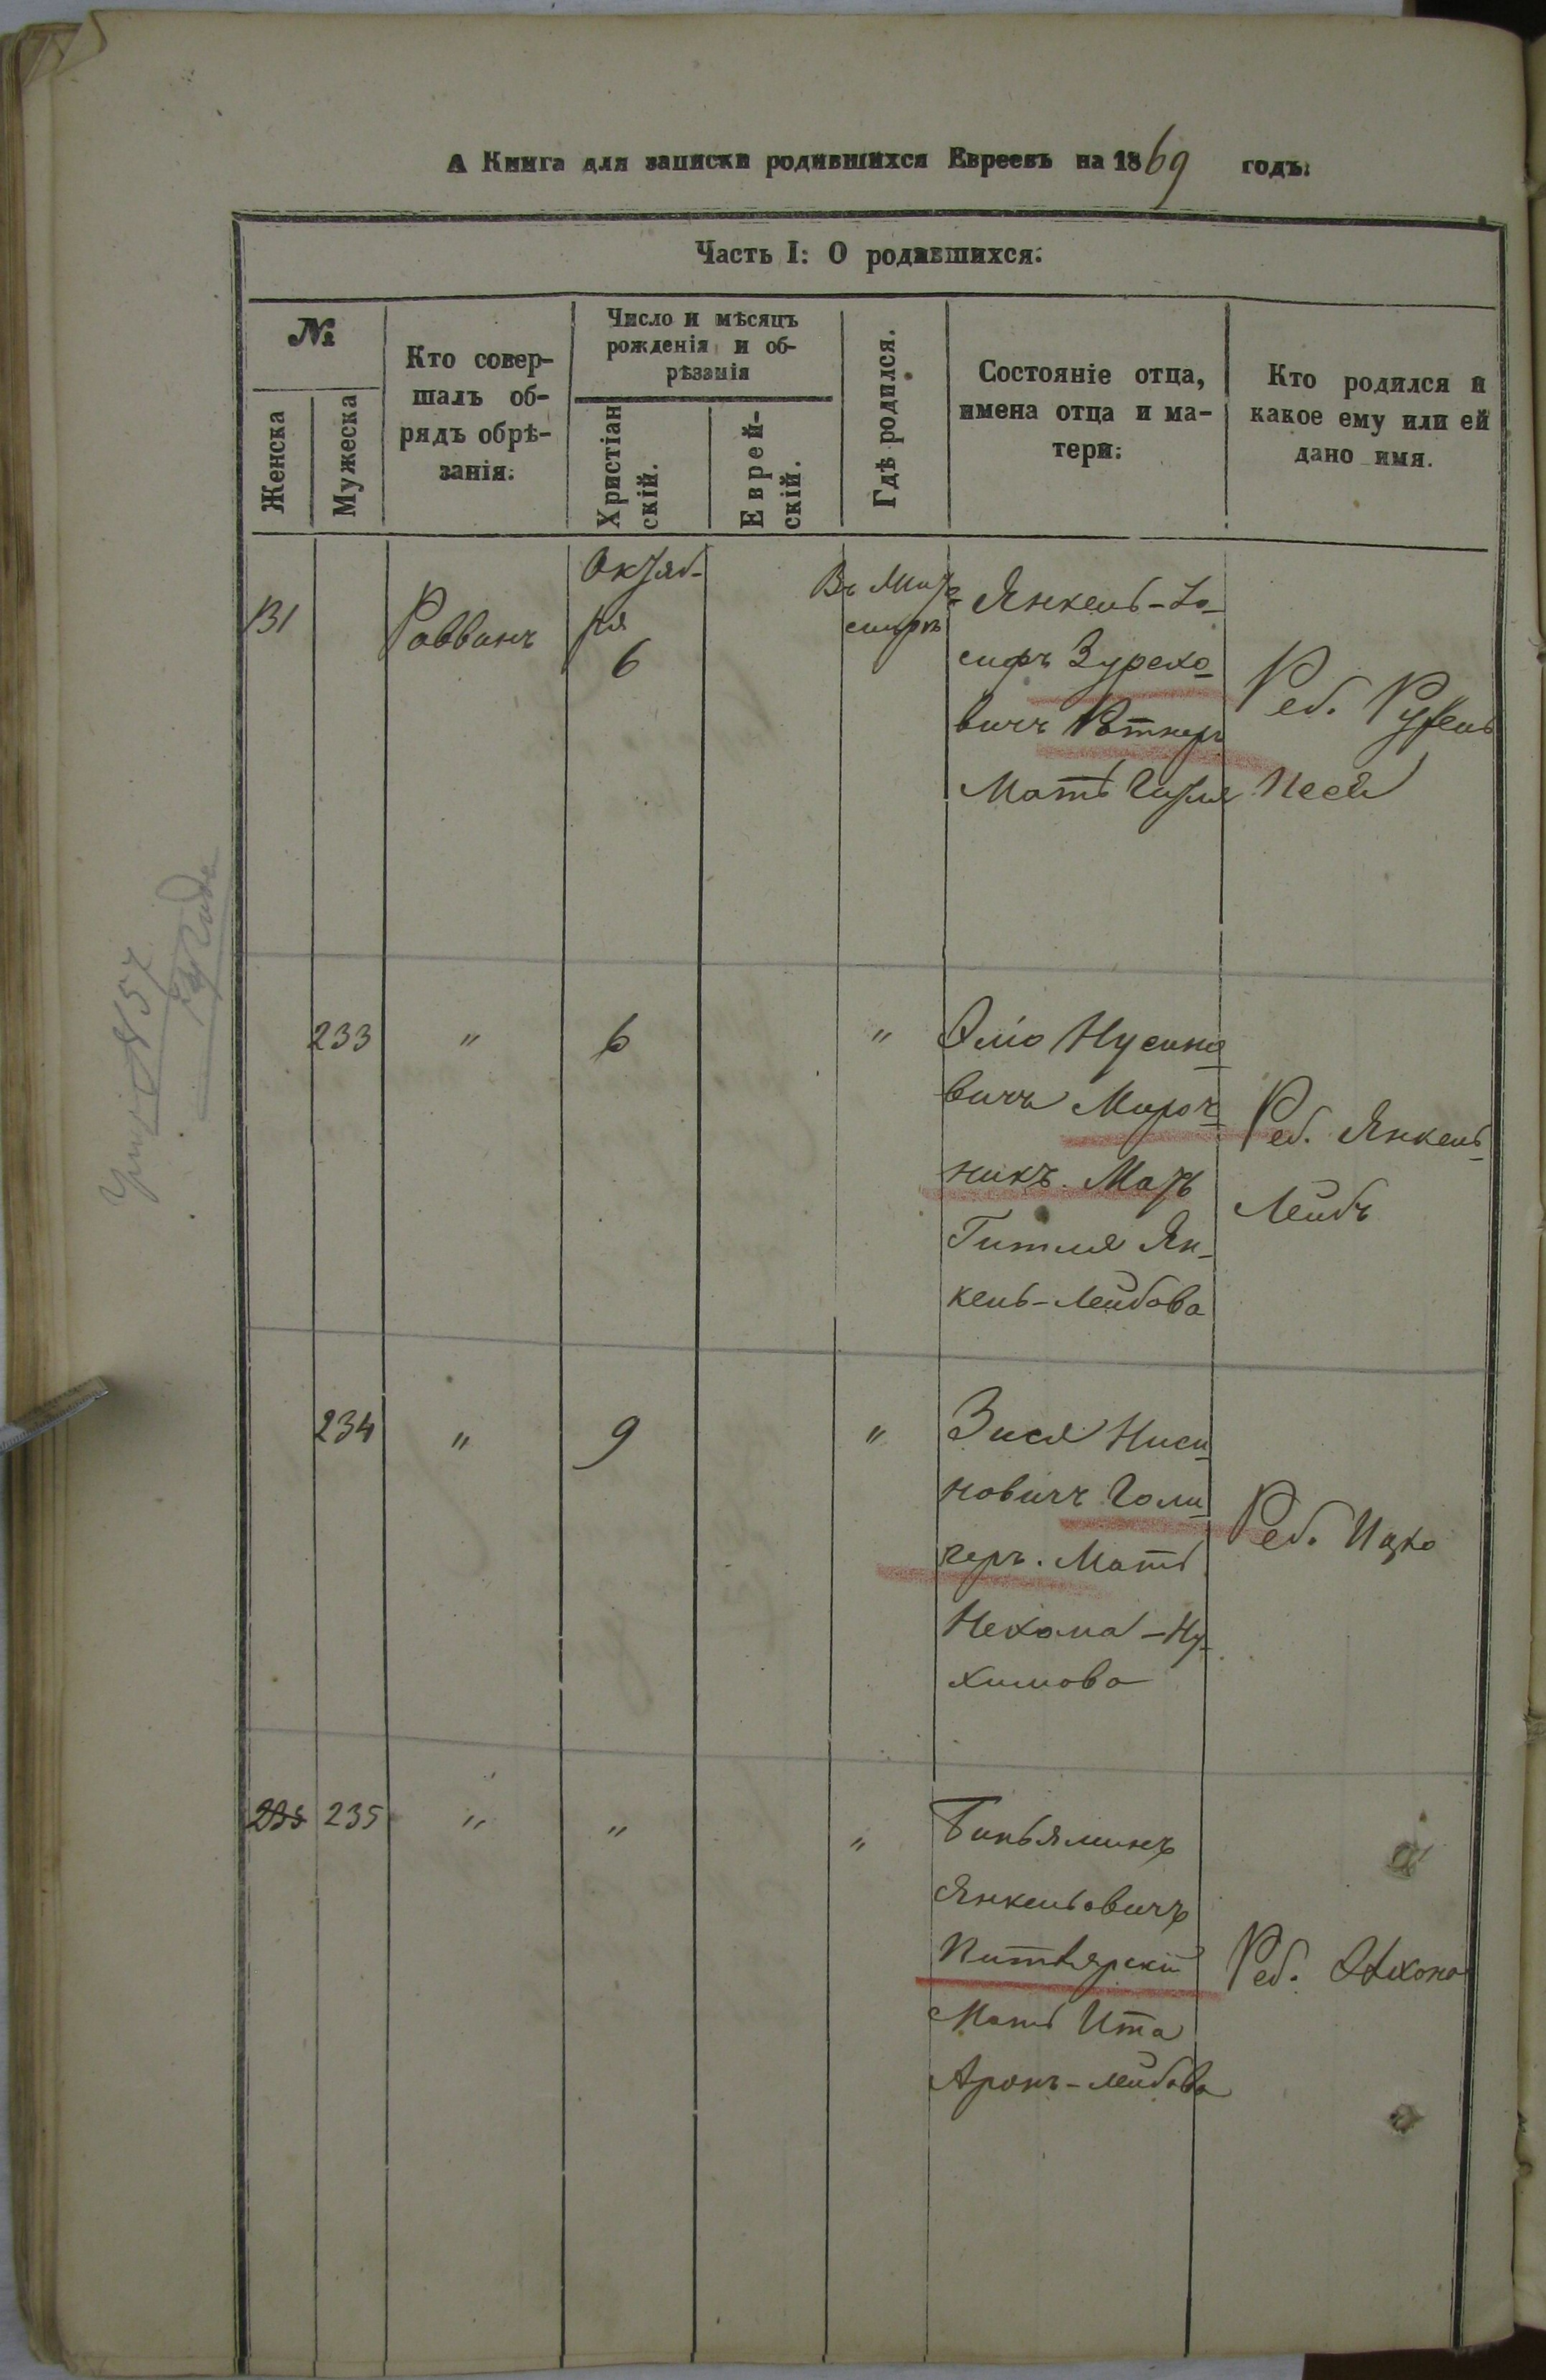 А Книга для записки родившихся Евреевъ на 1869 годъ.
Часть I: О родившихся.
№
Женска
Мужеска
Кто совер-
шалъ об-
рядъ обрѣ-
занія.
Число и мѣсяцъ
рожденія и об-
рѣзанія
Христіан
скій.
Еврей-
скій.
Гдѣ родился.
Состояніе отца,
имена отца и ма-
тери:
Кто родился и
какое ему или ей
дано имя.
131
Раввинъ
Октяб-
ря
6
Въ Жито
мирѣ
Янкель-Іо-
сифъ Зурехо-
вичъ
Мать
Реб.
Песя
233
"
6
"
Нусино
вичъ Мироч-
никъ. Мать
Гитля Ян-
кель-Лейбова
Реб. Янкель-
Лейбъ
234
"
9
"
Зися Ниси-
новичъ Голи-
геръ. Мать
Нехама-Ну-
химова
Реб. Ицко
235 235
"
"
"
Биньяминъ
Янкельовичъ
Мать Ита
Аронъ-Лейбова
Реб.
№ 57